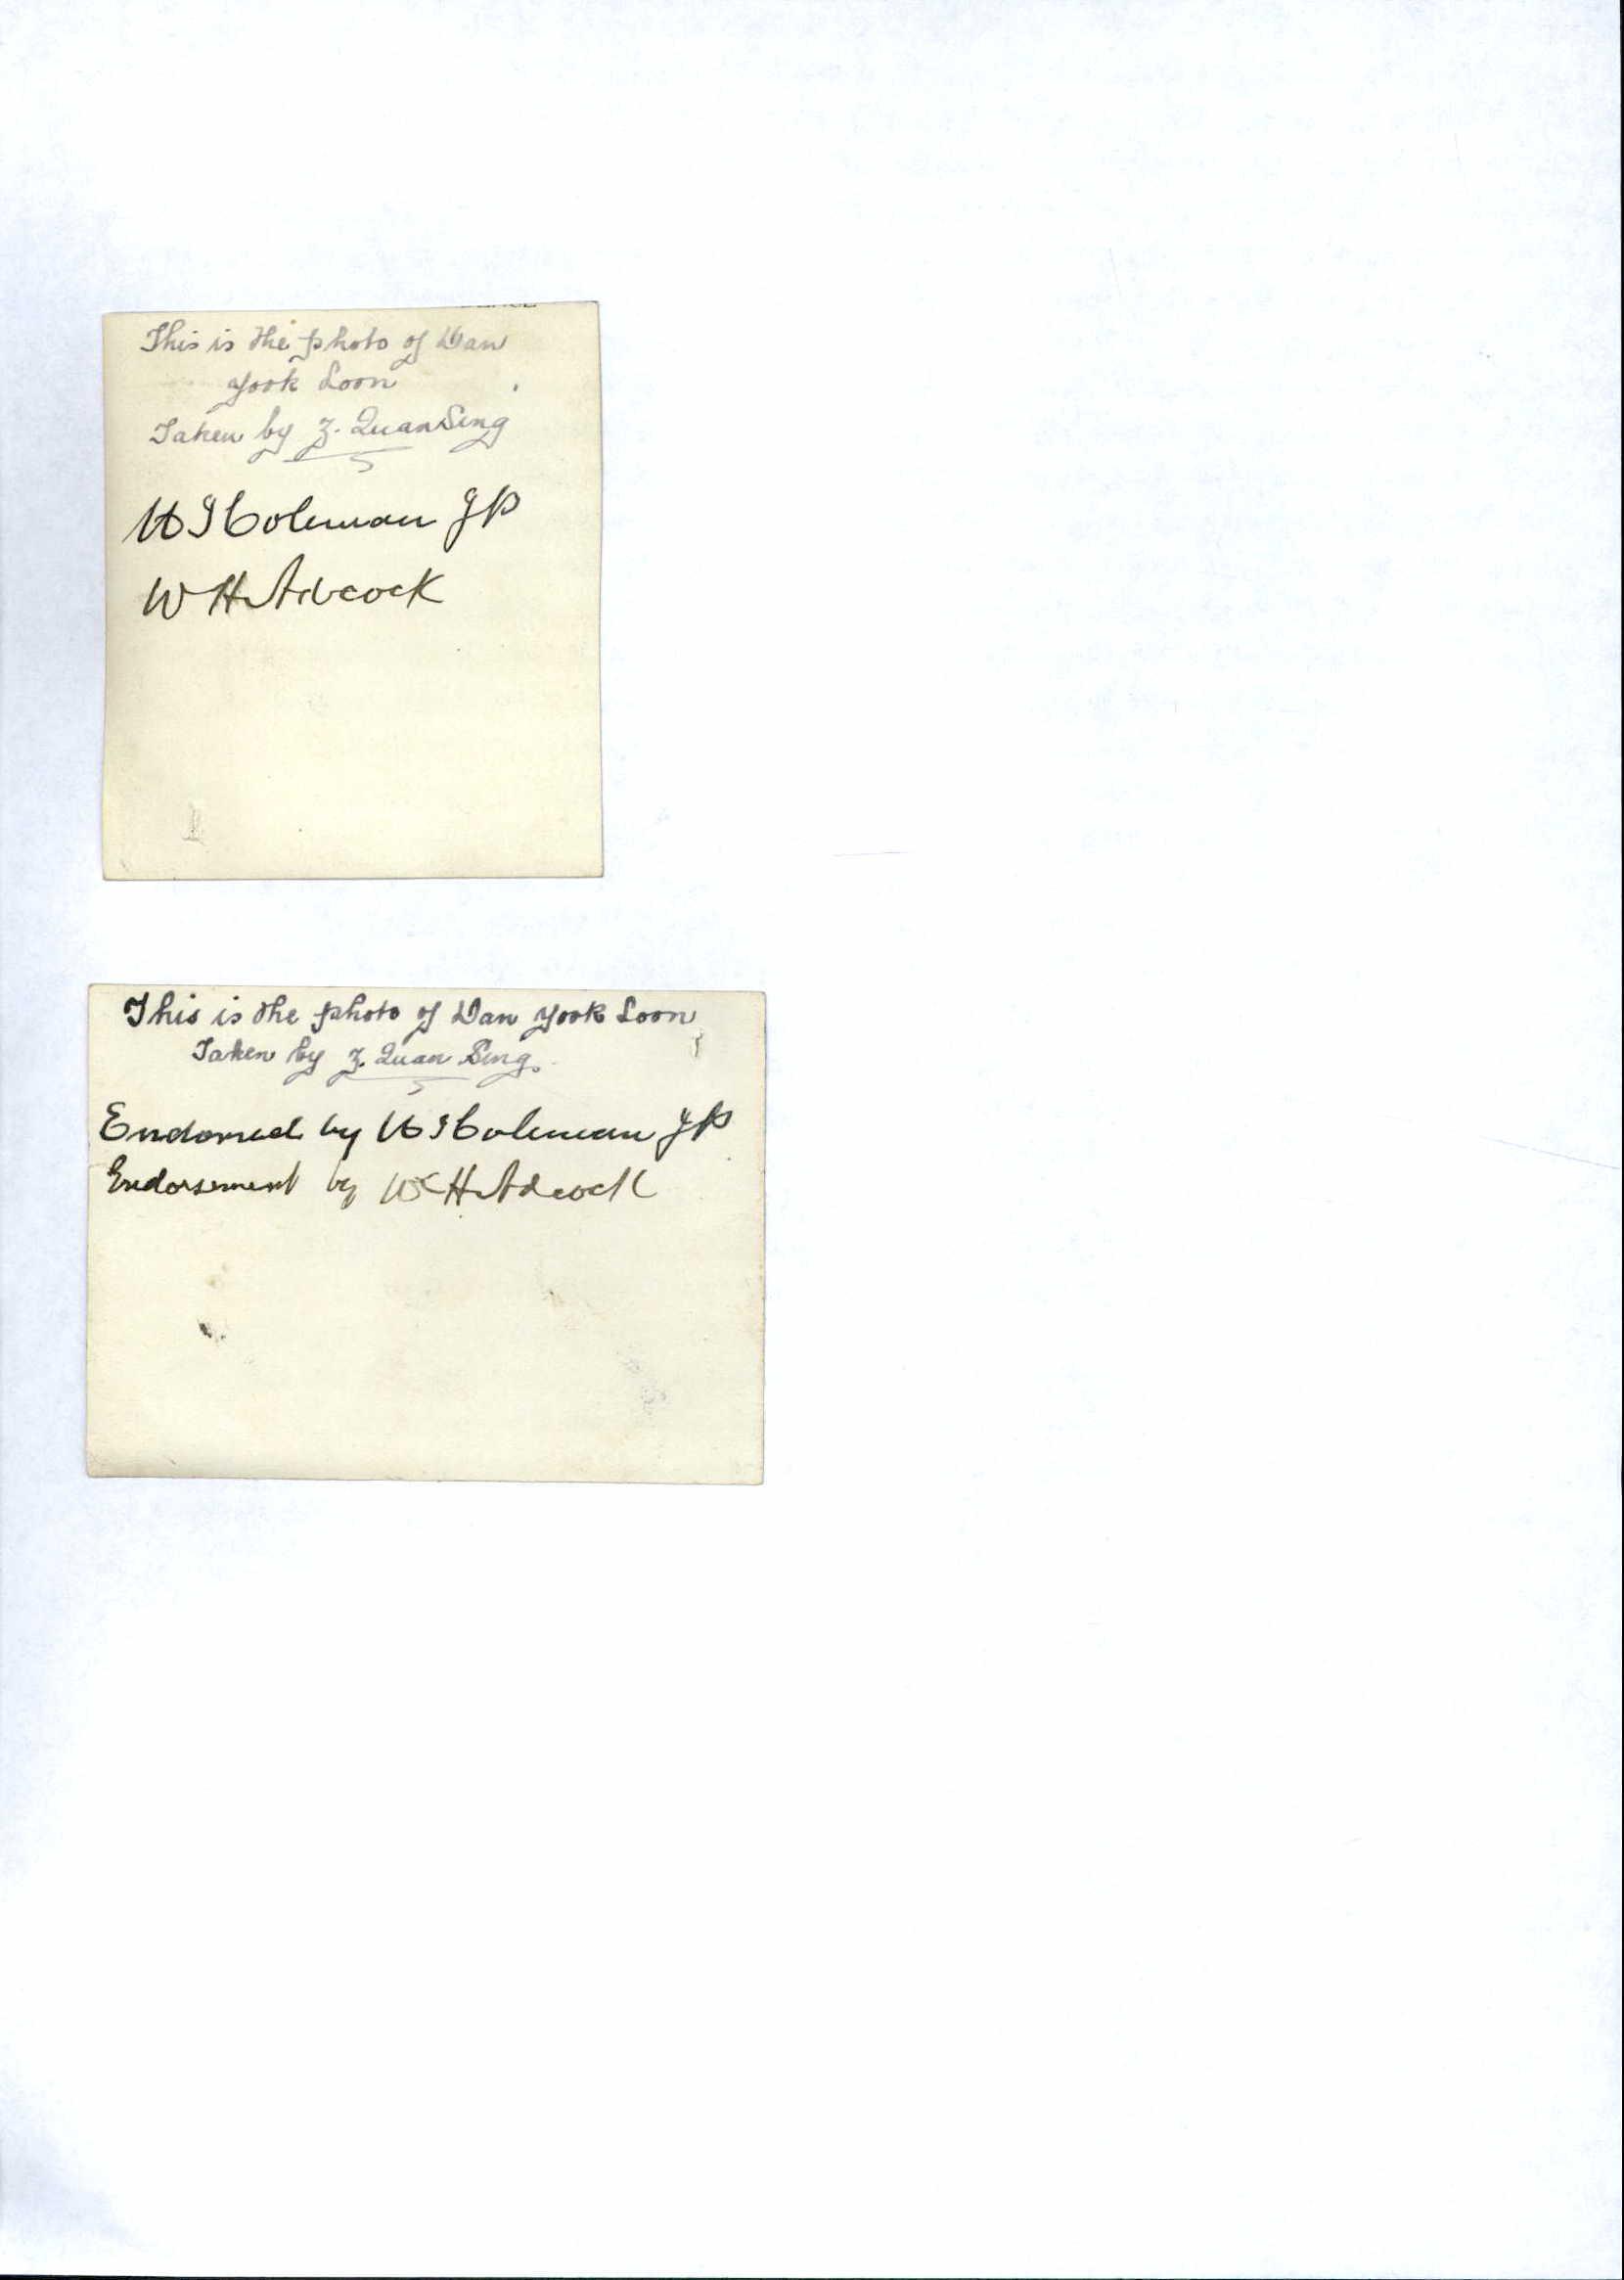 This is the photo of Wan
Yook Loon
Taken by Z. Quan Sing
H J Coleman JP
W H Adcock
This is the photo of Wan Yook Loon
Taken by Z. Quan Sing.
Endorsed by H J Coleman JP
Endorsement by W H Adcock